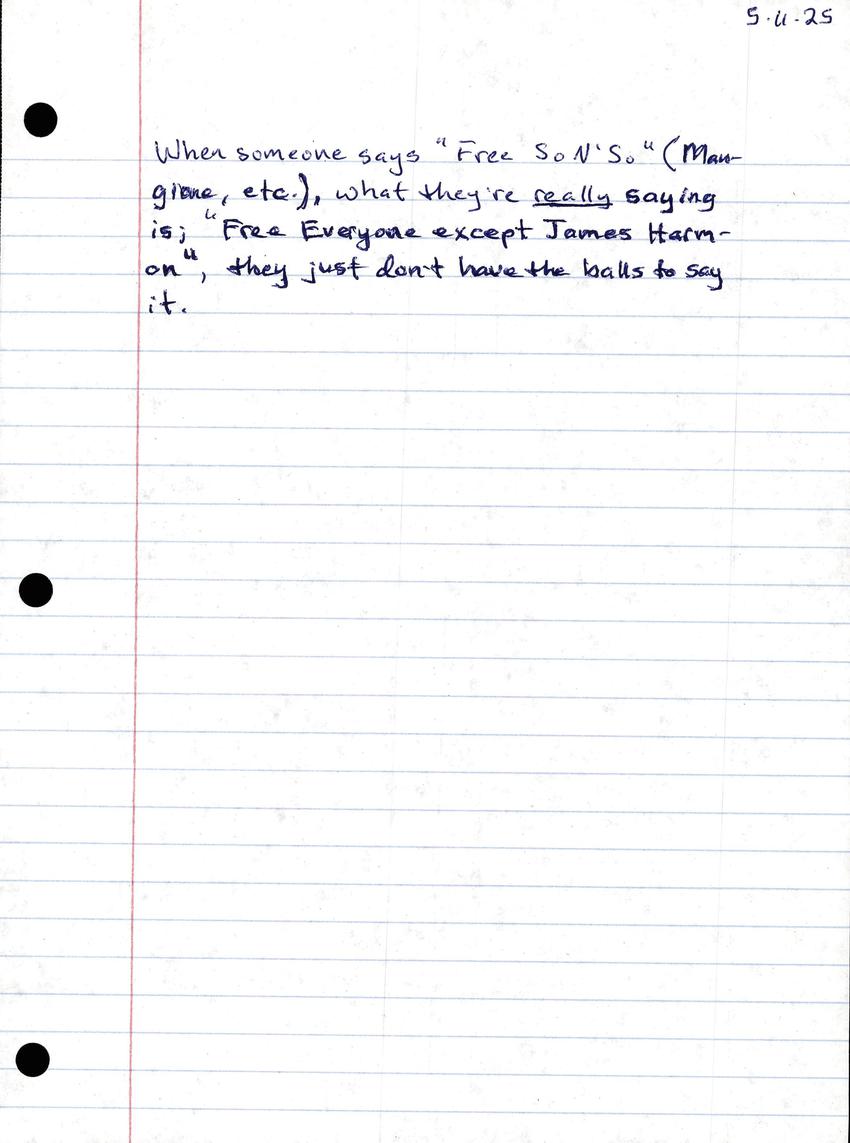 5.11.25
When someone says "Free So N' So" (Man-
gione, etc.), what they're really saying
is; "Free Everyone except James Harm-
on", they just don't have the balls to say
it.